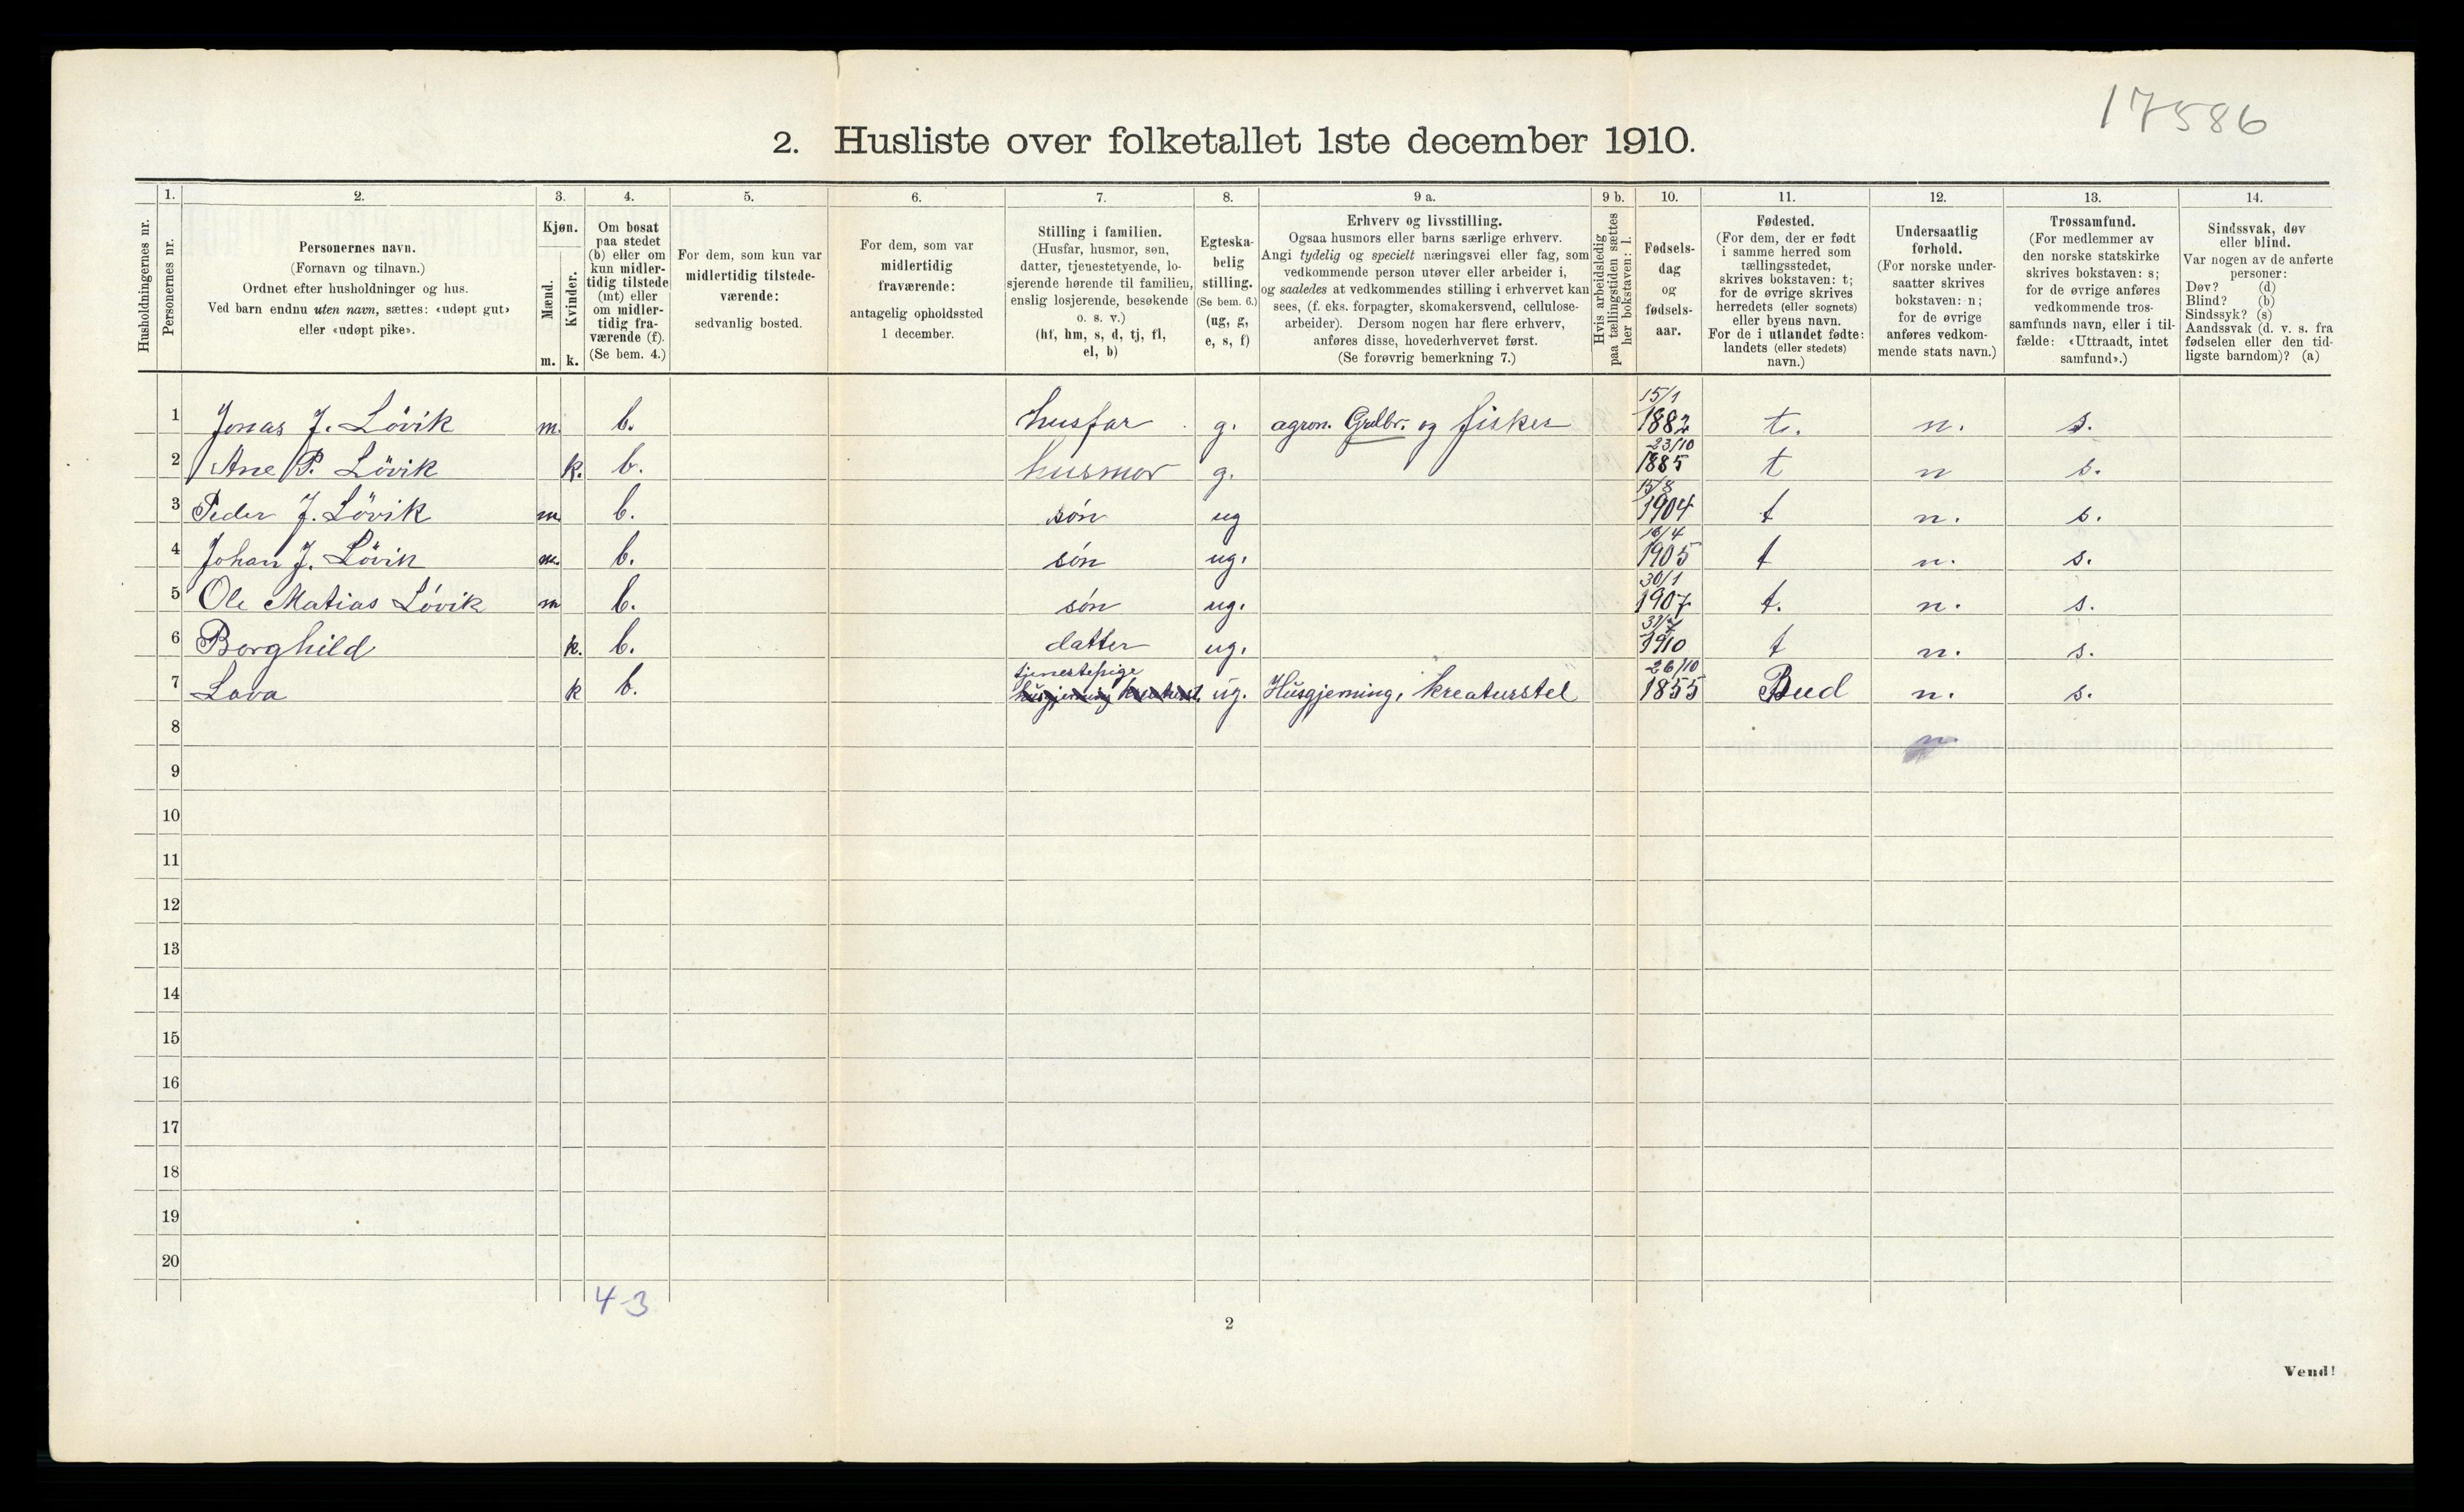 17586
2. Husliste over folketallet 1ste december 1910.
Husholdningernes nr.
1.
Personernes nr.
2.
Personernes navn.
(Fornavn og tilnavn.)
Ordnet efter husholdninger og hus.
Ved barn endnu uten navn, sættes: «udøpt gut»
eller «udøpt pike».
3.
Kjøn.
Mænd.
Kvinder.
m. k.
4.
Om bosat
paa stedet
(b) eller om
kun midler-
tidig tilstede
(mt) eller
om midler-
tidig fra-
værende (f).
(Se bem. 4.)
5.
For dem, som kun var
midlertidig tilstede-
værende:
sedvanlig bosted.
6.
For dem, som var
midlertidig
fraværende:
antagelig opholdssted
1 december.
7.
Stilling i familien.
(Husfar, husmor, søn,
datter, tjenestetyende, lo-
sjerende hørende til familien,
enslig losjerende, besøkende
o. s. v.)
(hf, hm, s, d, tj, fl,
el, b)
8.
Egteska-
belig
stilling.
(Se bem. 6.)
(ug, g,
e, s, f)
9 a.
Erhverv og livsstilling.
Ogsaa husmors eller barns særlige erhverv.
Angi tydelig og specielt næringsvei eller fag, som
vedkommende person utøver eller arbeider i,
og saaledes at vedkommendes stilling i erhvervet kan
sees, (f. eks. forpagter, skomakersvend, cellulose-
arbeider). Dersom nogen har flere erhverv,
anføres disse, hovederhvervet først.
(Se forøvrig bemerkning 7.)
9 b.
Hvis arbeidsledig
paa tællingstiden sættes
her bokstaven: l.
10.
Fødsels-
dag
og
fødsels-
aar.
11.
Fødested.
(For dem, der er født
i samme herred som
tællingsstedet,
skrives bokstaven: t;
for de øvrige skrives
herredets (eller sognets)
eller byens navn.
For de i utlandet fødte:
landets (eller stedets)
navn.)
12.
Undersaatlig
forhold.
(For norske under-
saatter skrives
bokstaven: n;
for de øvrige
anføres vedkom-
mende stats navn.)
13.
Trossamfund.
(For medlemmer av
den norske statskirke
skrives bokstaven: s;
for de øvrige anføres
vedkommende tros-
samfunds navn, eller i til-
fælde: «Uttraadt, intet
samfund».)
14.
Sindssvak, døv
eller blind.
Var nogen av de anførte
personer:
Døv? (d)
Blind? (b)
Sindssyk? (s)
Aandssvak (d. v. s. fra
fødselen eller den tid-
ligste barndom)? (a)
1 Jonas J. Lövik m. b. husfar g. agron. Grdbr. og fisker 15/1 1882 t. n. s.
2 Ane P. Lövik k. b. husmor g. 23/10 1885 t n s.
3 Peder J. Lövik m b. són ug 15/8 1904 t n. s.
4 Johan J. Lövik m. b. són ug. 16/4 1905 t n. s.
5 Ole Matias Lóvik m b. són ug. 30/1 1907 t. n. s.
6 Borghild k. b. datter ug. 1910 t n. s.
7 Lava k b. tjenestepige husgjerning ug. Husgjerning, kreaturstel 26/10 1855 Bud n. s.
8 n.
9
10
11
12
13
14
15
16
17
18
19
20
4 3
2
Vend!